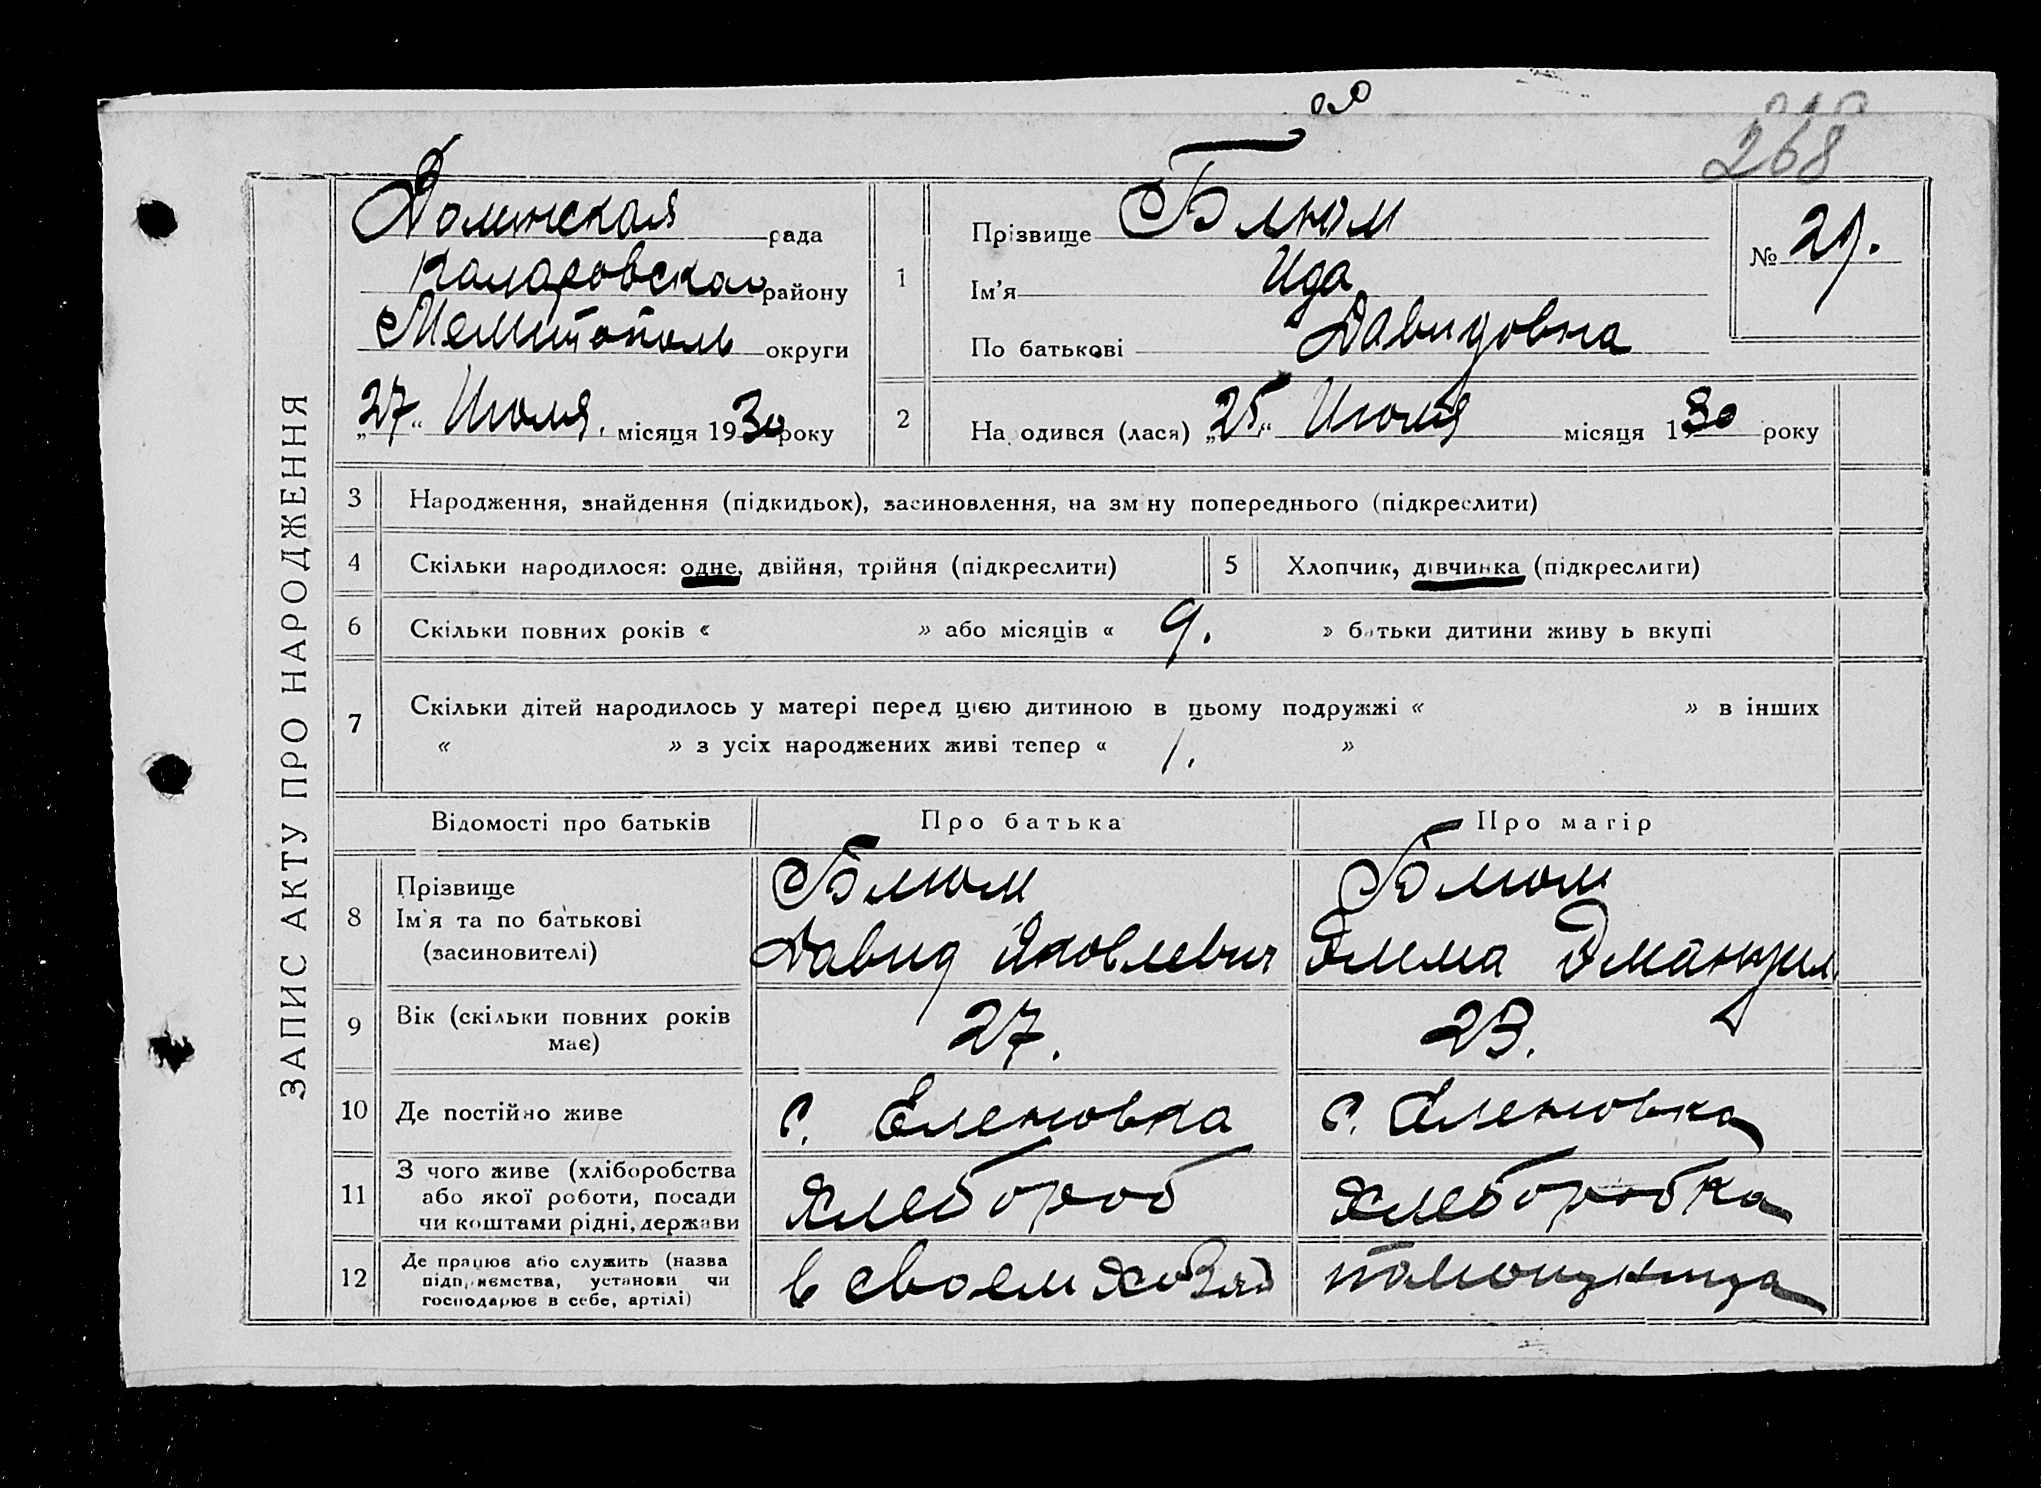 268
ЗАПИС АКТУ ПРО НАРОДЖЕННЯ
Долинская рада
Коларовская району
Мелитополь округи
„27“ Июля, місяця 1930 року
1
Прізвище Блюм
Ім'я Ида
По батькові Давидовна
№ 29.
2
На одився (лася) „25“ Июля місяця 1 30 року
3 Народження, знайдення (підкидьок), засиновлення, на зм ну попереднього (підкреслити)
4 Скільки народилося: одне, двійня, трійня (підкреслити) 5 Хлопчик, дівчинка (підкреслити)
6 Скільки повних років « » або місяців « 9. » батьки дитини живу ь вкупі
7 Скільки дітей народилось у матері перед цією дитиною в цьому подружжі « » в інших
« » з усіх народжених живі тепер « 1. »
Відомості про батьків Про батька Про матір
8 Прізвище Блюм Блюм
Ім'я та по батькові Давид Яковлевич Эмма Эмануил
(засиновителі)
9 Вік (скільки повних років має) 27. 23.
10 Де постійно живе с. Еленовка с. Еленовка
11 З чого живе (хліборобства
або якої роботи, посади хлебороб хлеборобка
чи коштами рідні, держави
12 Де працює або служить (назва
підприємства, установи чи в своем хозяй помощница
господарює в себе, артілі)